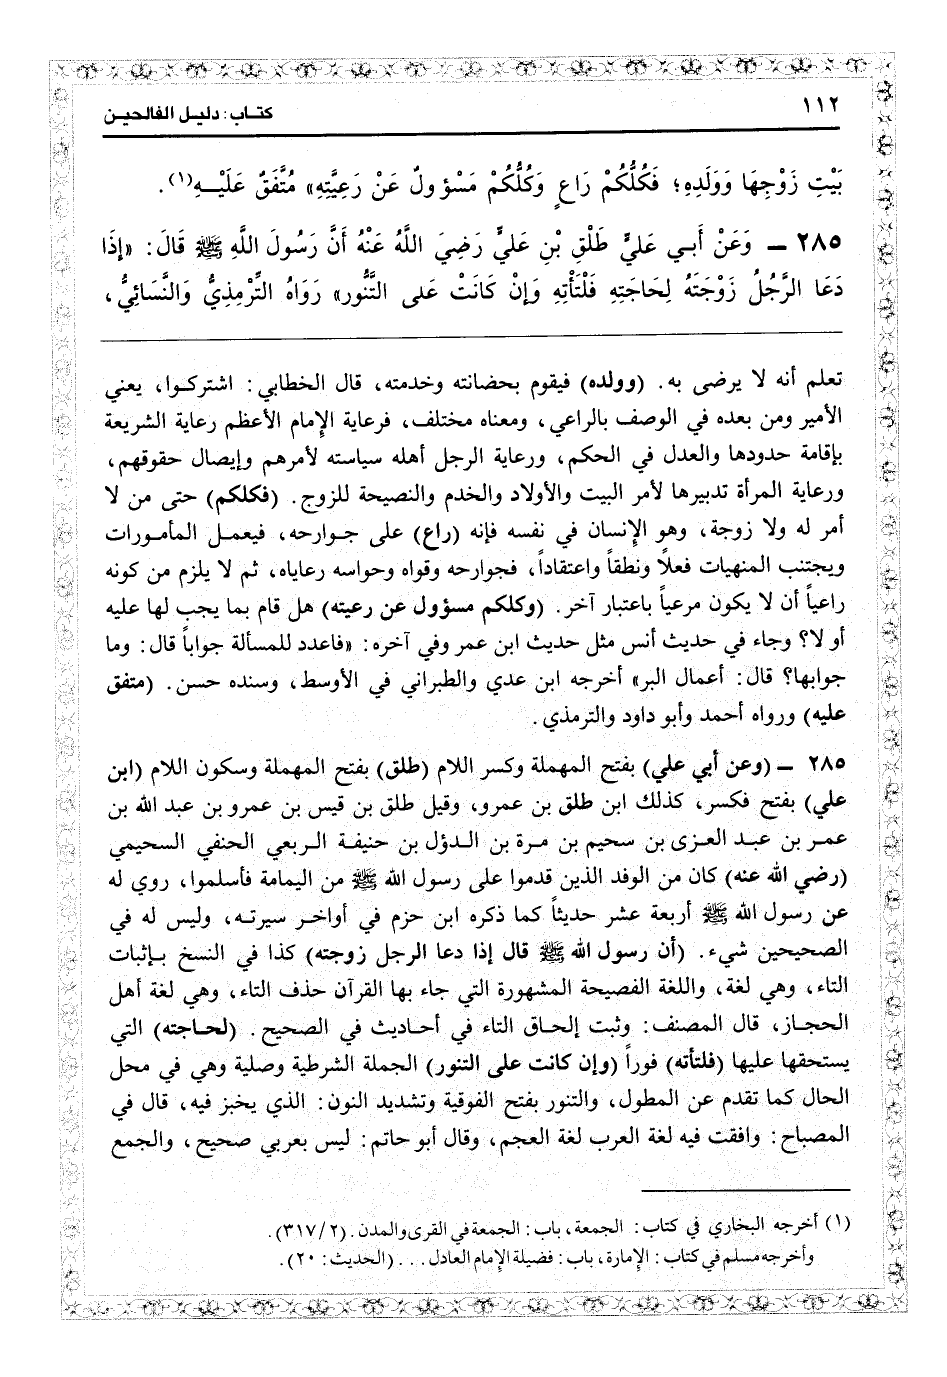 ١١٢
كتاب: دليل الفالحين
بَيْتِ زَوْجِهَا وَوَلَدِهِ؛ فَكُلُّكُمْ رَاعٍ وَكُلُّكُمْ مَسْؤولٌ عَنْ رَعِيَّتِهِ» مُتَّفَقٌ عَلَيْهِ(١).
٢٨٥ ـ وَعَنْ أَبي عَليٍّ طَلْقِ بْنِ عَليٍّ رَضِيَ اللَّهُ عَنْهُ أَنَّ رَسُولَ اللَّهِ ﷺ قَالَ: «إذَا
دَعَا الرَّجُلُ زَوْجَتَهُ لِحَاجَتِهِ فَلْتَأْتِهِ وَإنْ كَانَتْ عَلى التَّنُّور» رَوَاهُ التِّرْمِذِيُّ وَالنَّسَائيُّ،
تعلم أنه لا يرضى به. (وولده) فيقوم بحضانته وخدمته، قال الخطابي: اشتركوا، يعني
الأمير ومن بعده في الوصف بالراعي، ومعناه مختلف، فرعاية الإمام الأعظم رعاية الشريعة
بإقامة حدودها والعدل في الحكم، ورعاية الرجل أهله سياسته لأمرهم وإيصال حقوقهم،
ورعاية المرأة تدبيرها لأمر البيت والأولاد والخدم والنصيحة للزوج. (فكلكم) حتى من لا
أمر له ولا زوجة، وهو الإنسان في نفسه فإنه (راع) على جوارحه، فيعمل المأمورات
ويجتنب المنهيات فعلاً ونطقاً واعتقاداً، فجوارحه وقواه وحواسه رعاياه، ثم لا يلزم من كونه
راعياً أن لا يكون مرعياً باعتبار آخر. (وكلكم مسؤول عن رعيته) هل قام بما يجب لها عليه
أو لا؟ وجاء في حديث أنس مثل حديث ابن عمر وفي آخره: «فاعدد للمسألة جواباً قال: وما
جوابها؟ قال: أعمال البر» أخرجه ابن عدي والطبراني في الأوسط، وسنده حسن. (متفق
عليه) ورواه أحمد وأبو داود والترمذي.
٢٨٥ ـ (وعن أبي علي) بفتح المهملة وكسر اللام (طلق) بفتح المهملة وسكون اللام (ابن
علي) بفتح فكسر، كذلك ابن طلق بن عمرو، وقيل طلق بن قيس بن عمرو بن عبد الله بن
عمر بن عبد العزى بن سحيم بن مرة بن الدؤل بن حنيفة الربعي الحنفي السحيمي
(رضي الله عنه) كان من الوفد الذين قدموا على رسول الله ﷺ من اليمامة فأسلموا، روي له
عن رسول الله ﷺ أربعة عشر حديثاً كما ذكره ابن حزم في أواخر سيرته، وليس له في
الصحيحين شيء. (أن رسول الله ﷺ قال إذا دعا الرجل زوجته) كذا في النسخ بإثبات
التاء، وهي لغة، واللغة الفصيحة المشهورة التي جاء بها القرآن حذف التاء، وهي لغة أهل
الحجاز، قال المصنف: وثبت إلحاق التاء في أحاديث في الصحيح. (لحاجته) التي
يستحقها عليها (فلتأته) فوراً (وإن كانت على التنور) الجملة الشرطية وصلية وهي في محل
الحال كما تقدم عن المطول، والتنور بفتح الفوقية وتشديد النون: الذي يخبز فيه، قال في
المصباح: وافقت فيه لغة العرب لغة العجم، وقال أبو حاتم: ليس بعربي صحيح، والجمع
(١) أخرجه البخاري في كتاب: الجمعة، باب: الجمعة في القرى والمدن. (٣١٧/٢).
وأخرجه مسلم في كتاب: الإمارة، باب: فضيلة الإمام العادل... (الحديث: ٢٠).